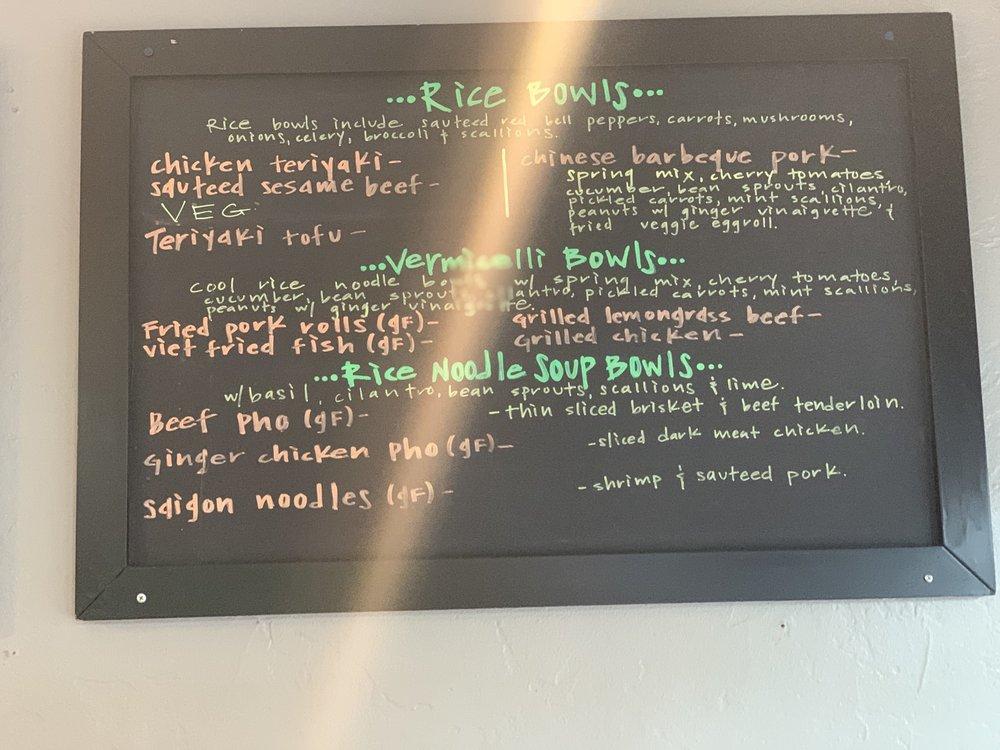 ...Rice Bowls...
Rice bowls include sauteed red bell peppers, carrots, mushrooms,
onions, celery, broccoli & scallions.
chicken teriyaki-
sauteed sesame beef-
VEG:
Teriyaki tofu-
chinese barbeque pork-
spring mix, cherry tomatoes,
cucumber, bean sprouts, cilantro,
pickled carrots, mint scallions,
peanuts w/ ginger vinaigrette &
fried veggie eggroll.
...Vermicelli Bowls...
cool rice noodle bowls w/ spring mix, cherry tomatoes,
cucumber, bean sprouts, cilantro, pickled carrots, mint scallions,
peanuts w/ ginger vinaigrette.
Fried pork rolls (gF)-
viet fried fish (gF)-
grilled lemongrass beef-
grilled chicken-
...Rice Noodle Soup Bowls...
w/basil, cilantro, bean sprouts, scallions & lime.
Beef pho (gF)- -thin sliced brisket & beef tenderloin.
ginger chicken pho (gF)- -sliced dark meat chicken.
saigon noodles (gF)- -shrimp & sauteed pork.